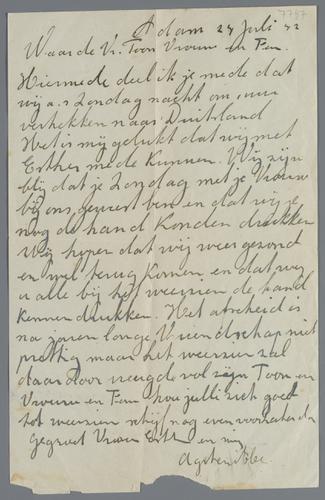 7787
A dam 24 Juli 42
Waarde Vr. Toon Vrouw en Fam.
Hiermede deel ik je mede dat
wij a.s Zondag nacht om uur
vertrekken naar Duitsland
Het is mij gelukt dat wij met
Esther mede kunnen. Wij zijn
blij dat je Zondag met je Vrouw
bij ons geweest ben en dat wij je
nog de hand konden drukken
Wij hopen dat wij weer gezond
en wel terug komen en dat wij
u alle bij het weerzien de hand
kennen drukken. Het afscheid is
na jaren lange Vriendschap niet
prettig maar het weerzien zal
daar door vreugde vol zijn Toon en
Vrouw en Fam hou jullie zich goed
tot weerzien schijf nog even voor
Gegroet Vrouw Esth en mij